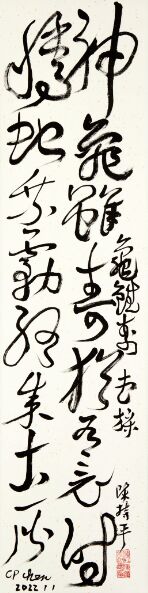 神龜雖壽猶有竟時
騰蛇乘霧終成土灰
龜雖壽 曹操
陳持平
CP chen
2022 11